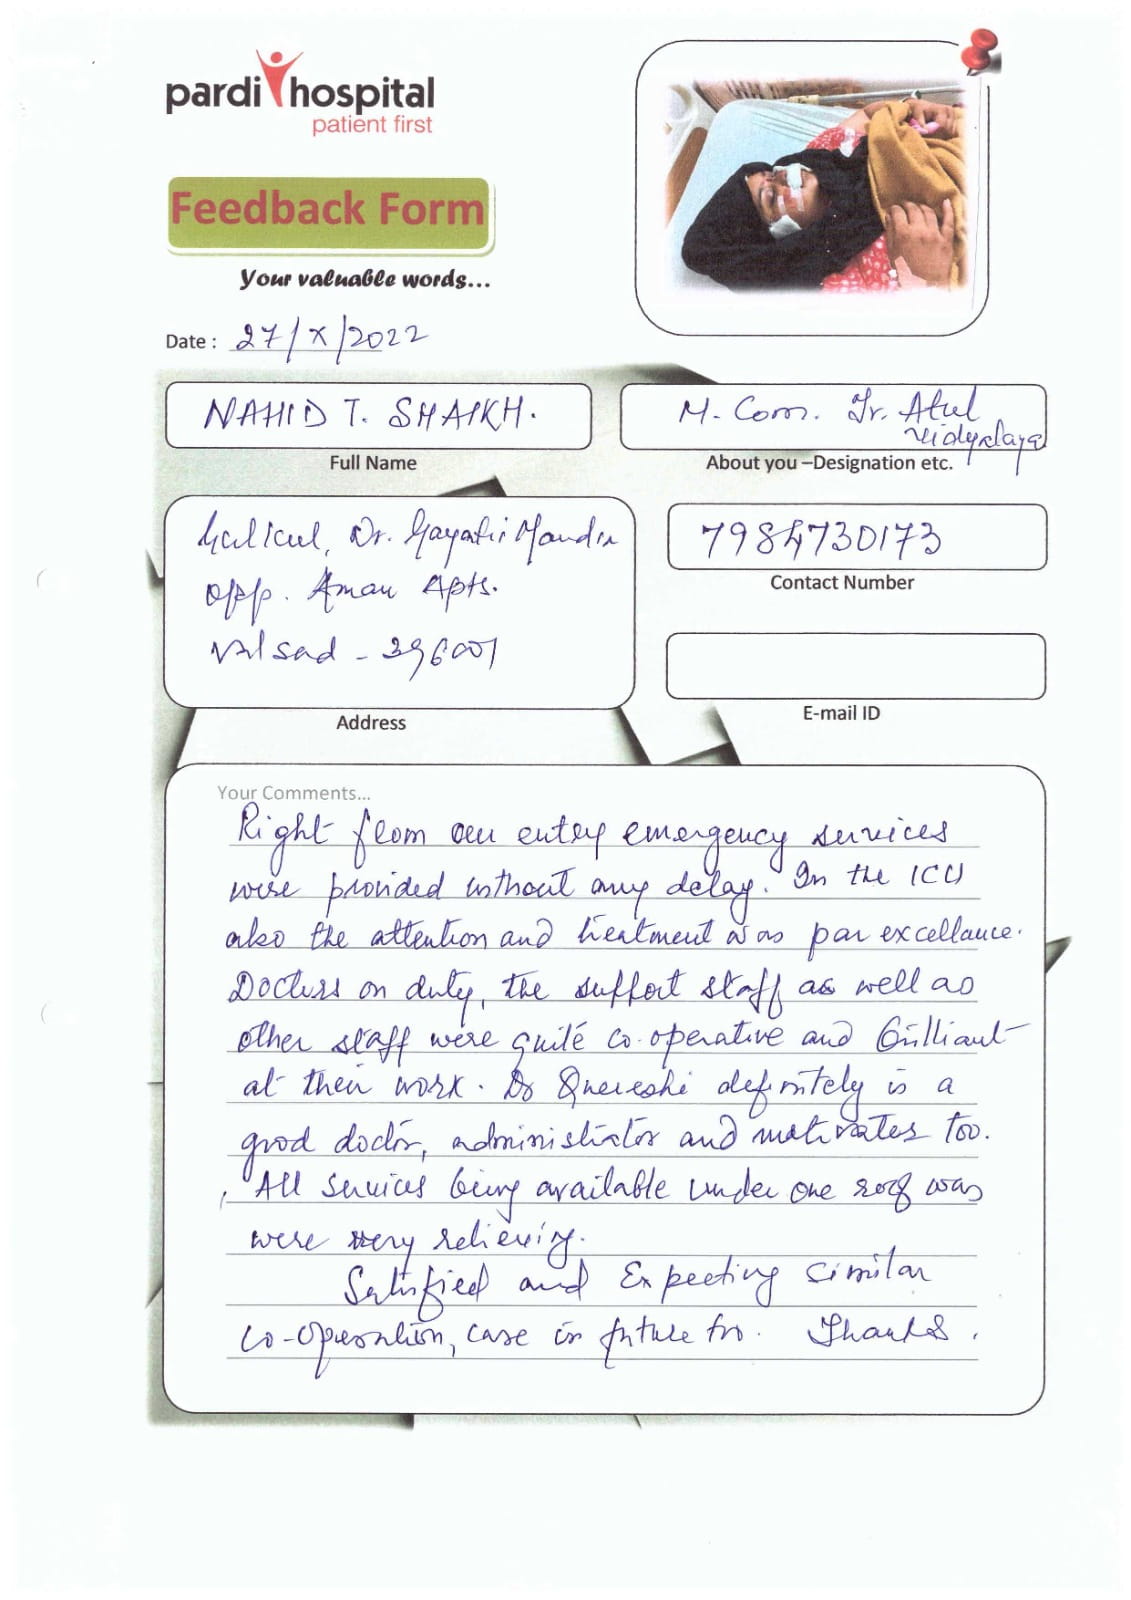 pardi hospital
patient first
Feedback Form
Your valuable words...
Date : 27/X/2022
NAHID T. SHAIKH.
Full Name
M. Com. Tr. Atul
Vidyalaya
About you –Designation etc.
Gulkul, Nr. Gayatri Mandir
opp. Aman Apts.
Valsad - 396001
Address
7984730173
Contact Number
E-mail ID
Your Comments...
Right from our entry emergency services
were provided without any delay. In the ICU
also the attention and treatment was par excellance.
Doctors on duty, the support staff as well as
other staff were quite co.operative and brilliant
at their work. Dr Quereshi definitely is a
good doctor, administrator and motivates too.
All services being available under one roof was
were very relieving.
Satisfied and Expecting similar
co-operation, care in future too. Thanks.